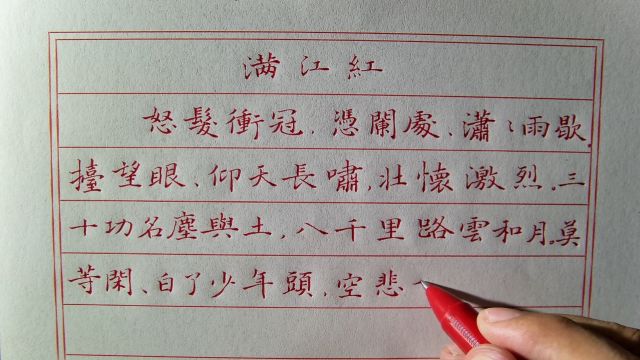 满江紅
怒髮衝冠、憑闌處、瀟〻雨歇.
擡望眼、仰天長嘯,壯懷激烈.三
十功名塵與土,八千里路雲和月。莫
等閑、白了少年頭,空悲